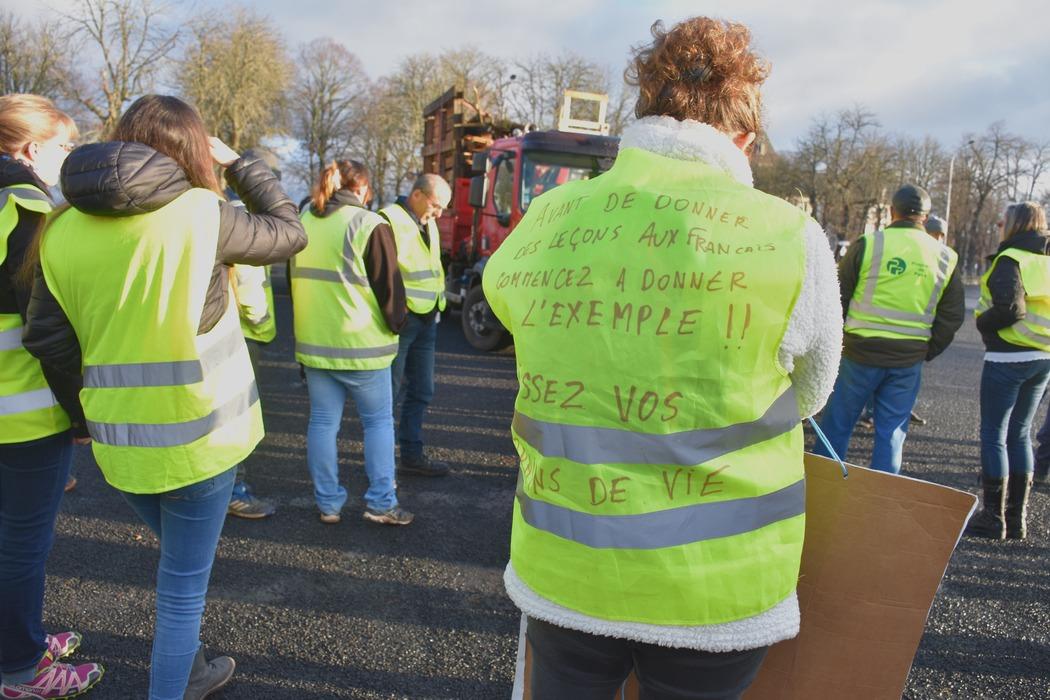 AVANT DE DONNER
DES LEÇONS AUX FRANCAIS
COMMENCEZ A DONNER
L'EXEMPLE !!
SSEZ VOS
NS DE VIE